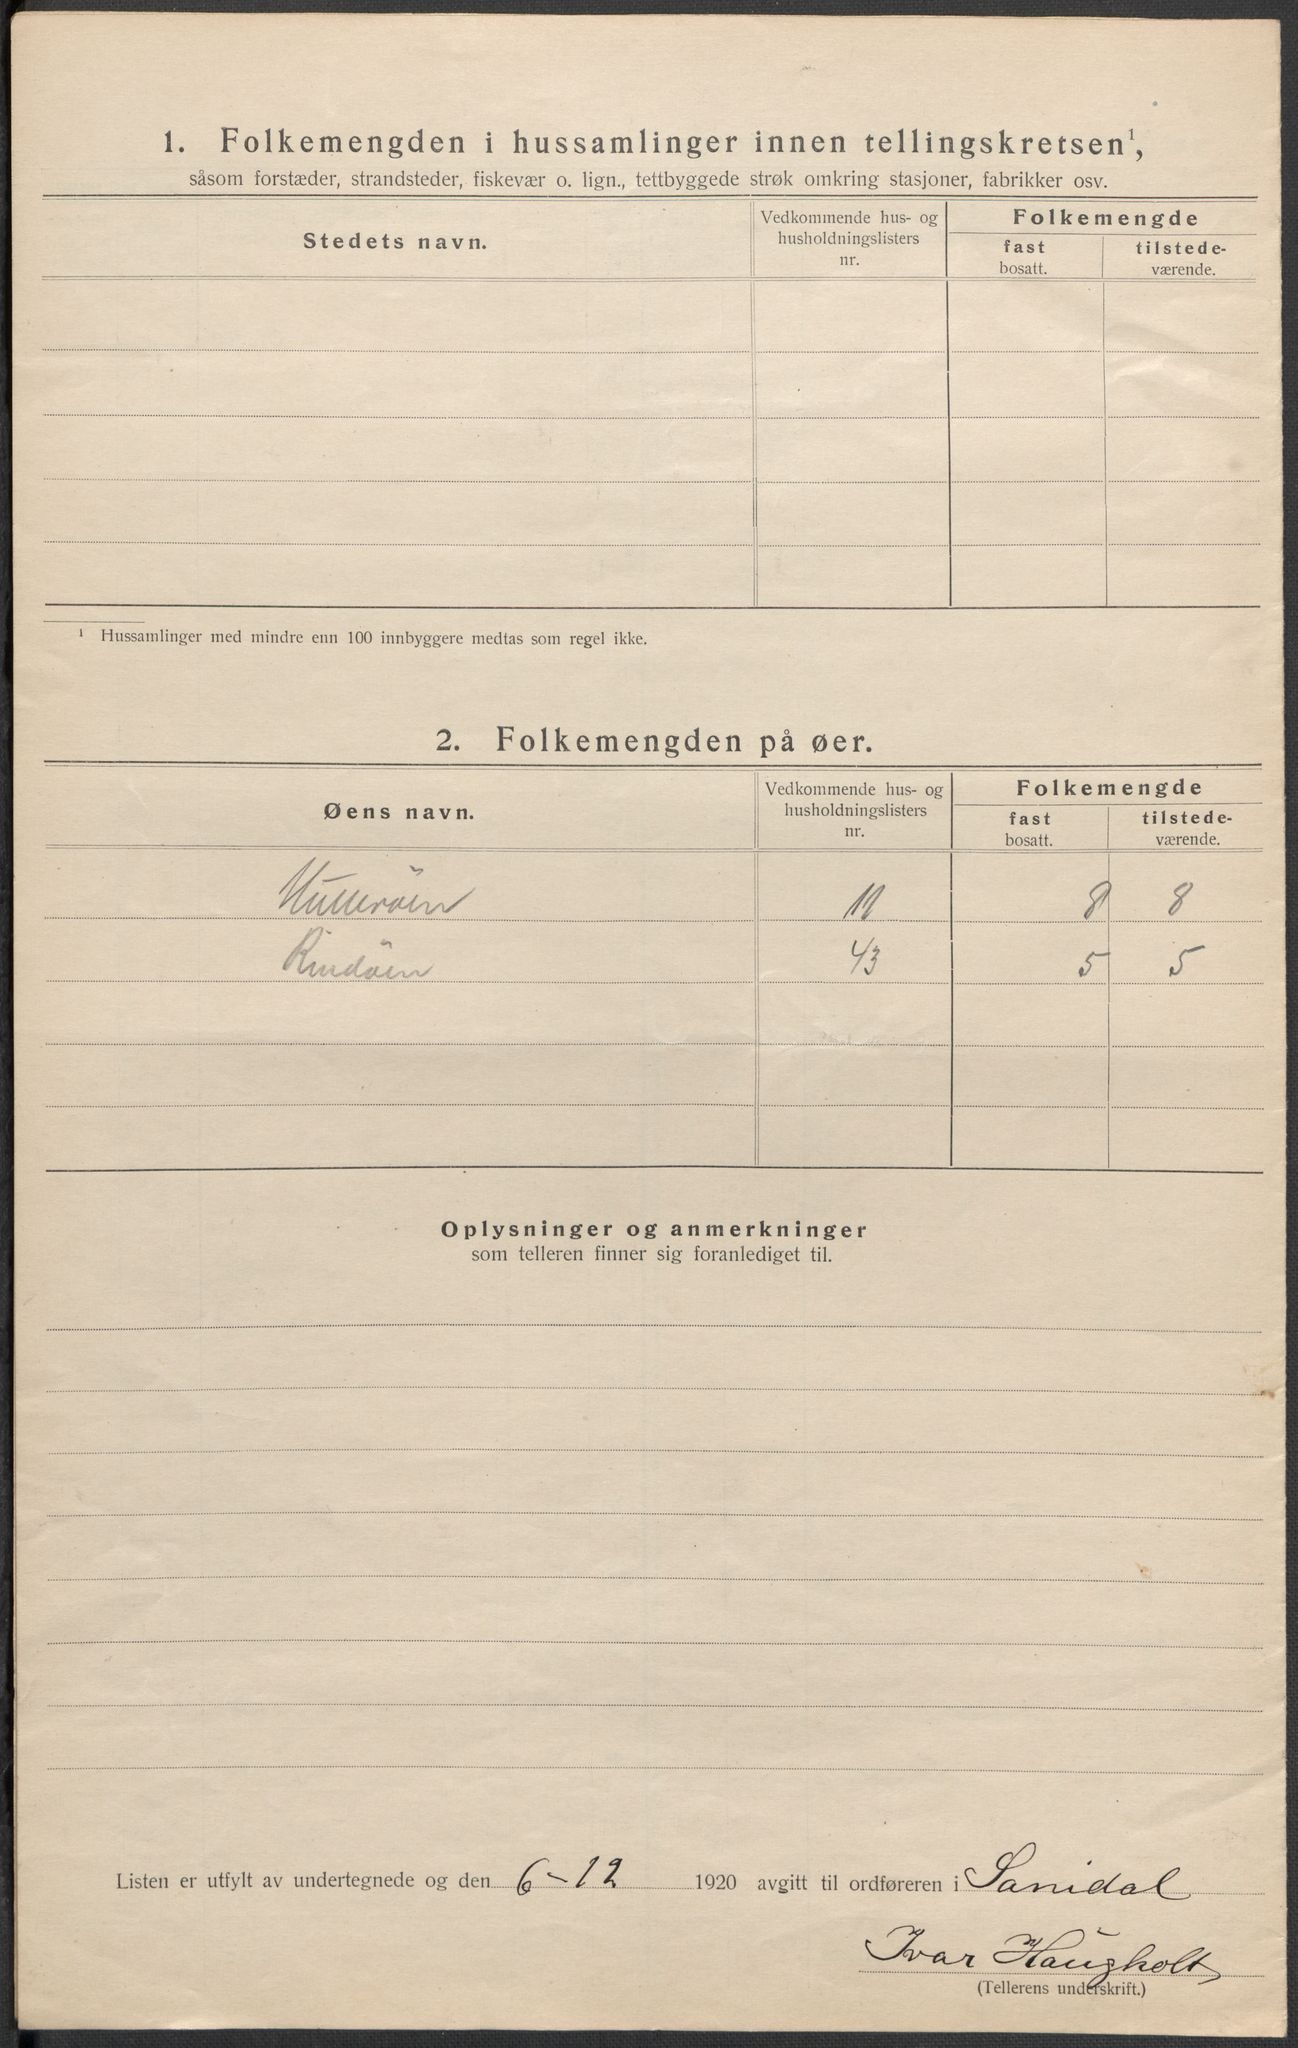 1. Folkemengden i hussamlinger innen tellingskretsen¹,
såsom forstæder, strandsteder, fiskevær o. lign., tettbyggede strøk omkring stasjoner, fabrikker osv.
Stedets navn.
Vedkommende hus- og
husholdningslisters
nr.
Folkemengde
fast
bosatt.
tilstede-
værende.
¹ Hussamlinger med mindre enn 100 innbyggere medtas som regel ikke.
2. Folkemengden på øer.
Øens navn.
Vedkommende hus- og
husholdningslisters
nr.
Folkemengde
fast
bosatt.
tilstede-
værende.
11 8 8
Rindöen 43 5 5
Oplysninger og anmerkninger
som telleren finner sig foranlediget til.
Listen er utfylt av undertegnede og den 6-12 1920 avgitt til ordføreren i Sanidal
Ivar Haugholt
(Tellerens underskrift.)